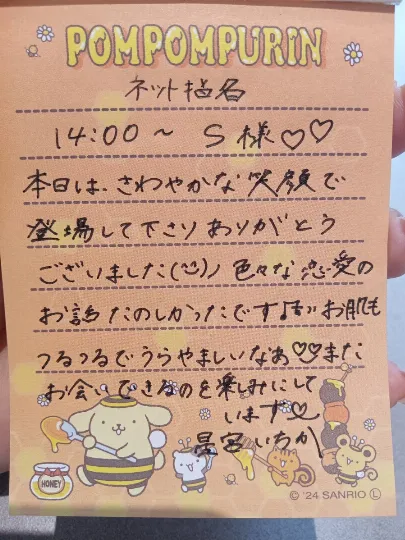 POMPOMPURIN
ネット指名
14:00〜 S様♡♡
本日は、さわやかな笑顔で
登場して下さりありがとう
ございました(^^)ノ 色々な恋愛の
お話たのしかったです♪ お肌も
つるつるでうらやましいなあ♡♡また
お会いできるのを楽しみにして
います♡
星宮いちか
HONEY
© '24 SANRIO Ⓛ